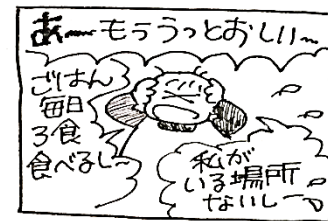 あ〜もううっとおしい〜
ごはん
毎日
3食
食べるし〜
私が
いる場所
ないし〜